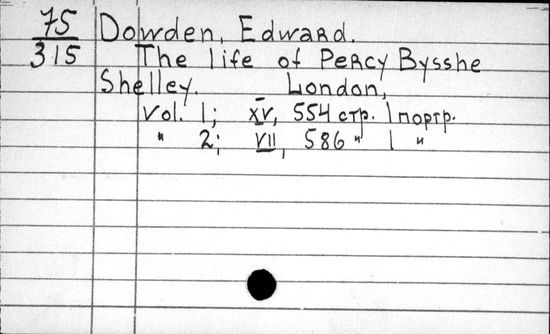 75 Dowden, Edward.
315 The life of Percy Bysshe
Shelley. London,
Vol. 1; XV, 554 стр. 1 портр.
" 2; VII, 586 " 1 "